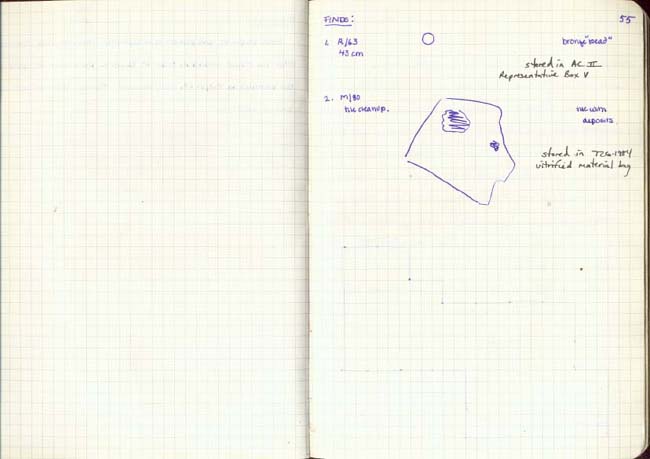 55
FINDS:
1. R/63
43 cm
bronze "bead"
stored in AC II
Representative Box V
2. M/80
tile cleanup.
tile with
deposits.
stored in T26-1984
vitrified material bag